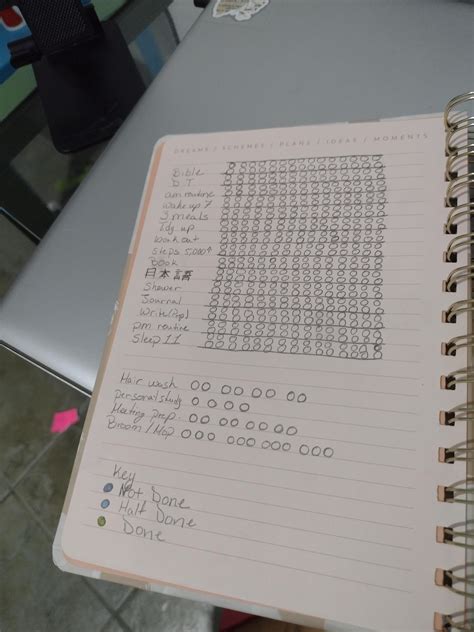 DREAMS / SCHEMES / PLANS / IDEAS / MOMENTS
Bible
D.T.
am routine
Wake up 7
3 meals
Tdg. up
Work out
Steps 5,000↑
Book
日本語
Shower
Journal
Write (1pg)
pm routine
Sleep 11
Hair wash
personal study
Meeting prep
Broom / Mop
Key
Not Done
Half Done
Done